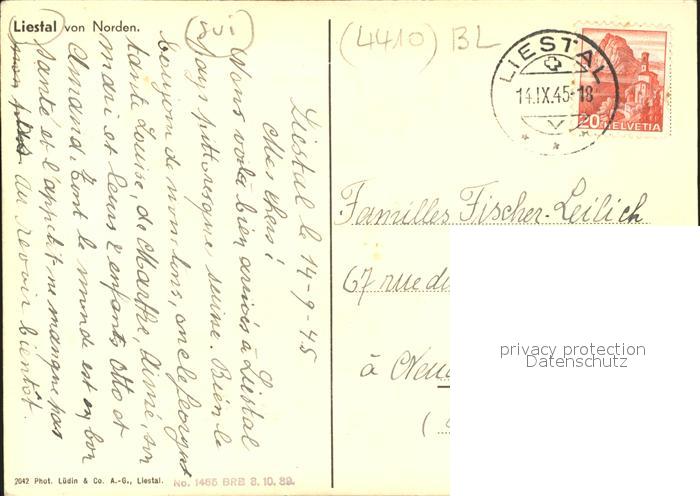 Liestal von Norden.
(4410) BL
LIESTAL
14.IX.45-18
V
20 HELVETIA
Liestal le 14-9-45
Mes chers!
Nous voilà bien arrivés à Liestal
pays pittoresque suisse. Bien le
bonjour de nous tous, oncle Georges
tante Louise, de Marthe, Aimé, son
mari et leurs 2 enfants Otto et
Amand. Tout le monde est en bon
santé et l'appétit ne manque pas
non plus. Au revoir bientôt.
Familles Fischer-Leilich
67 rue du
à
(
privacy protection
Datenschutz
2042 Phot. Lüdin & Co. A.-G., Liestal.
No. 1465 BRB 3. 10. 39.